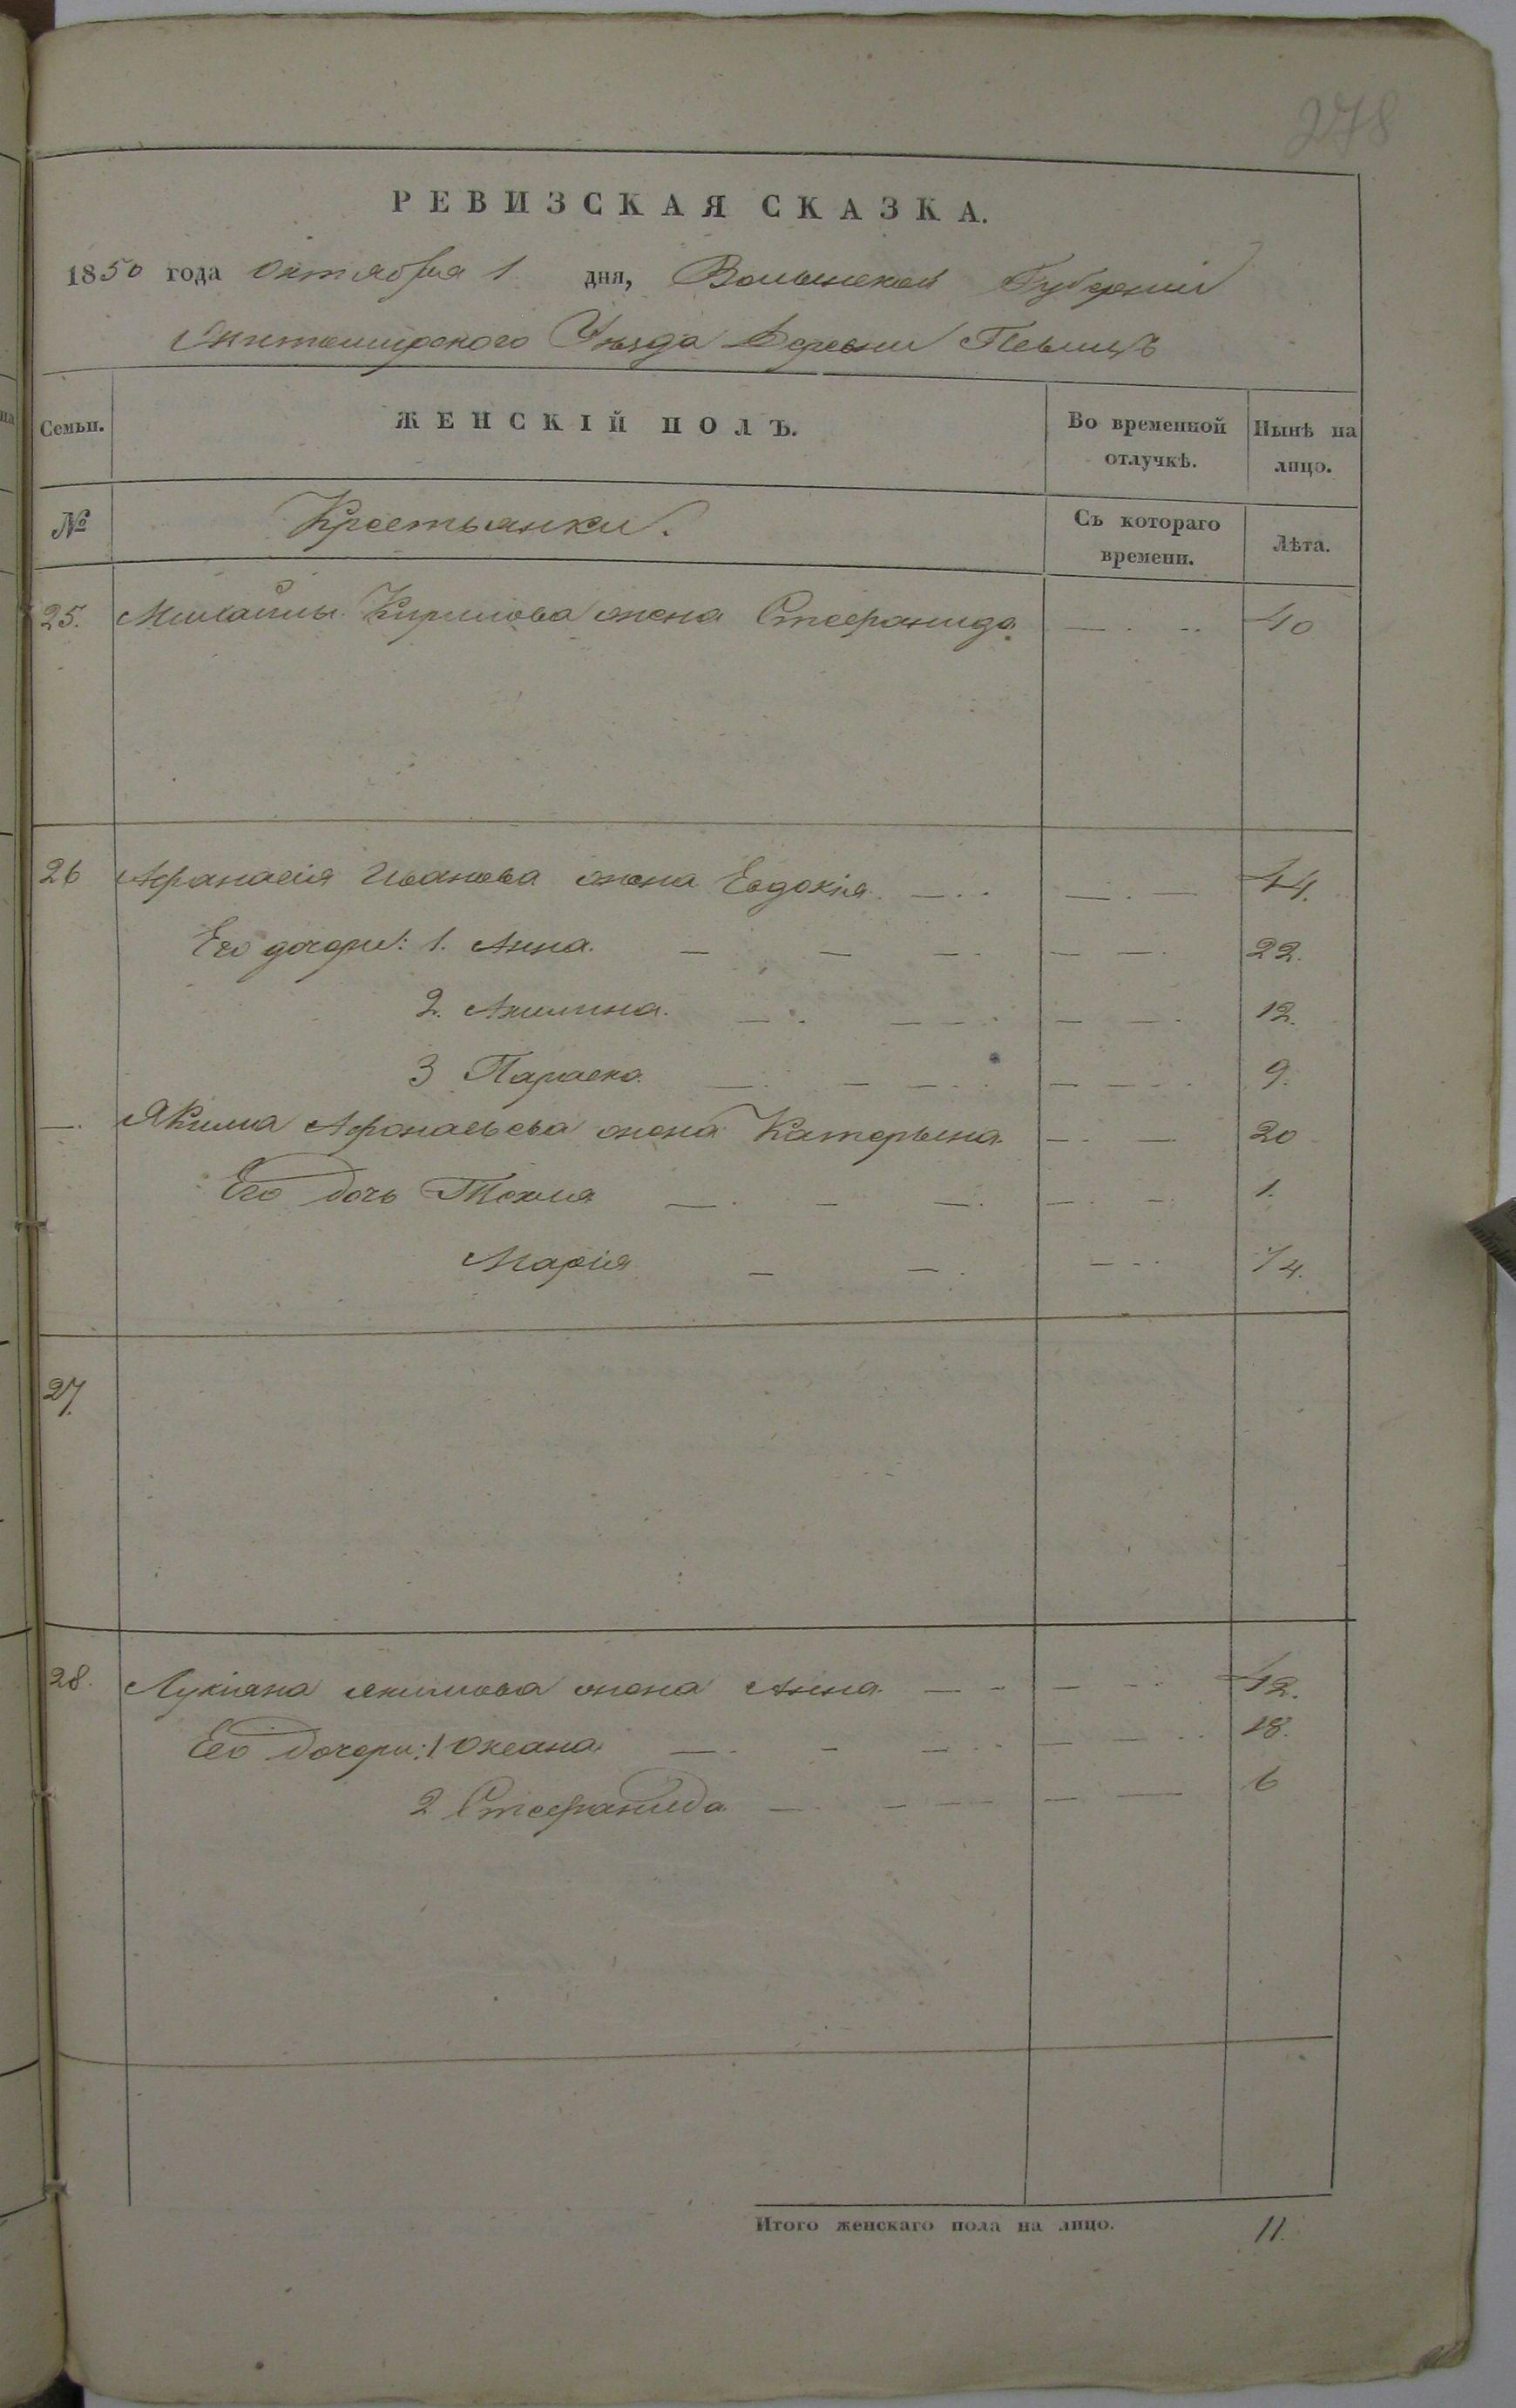 278
РЕВИЗСКАЯ СКАЗКА.
1850 года Октября 1 дня, Волынской Губерніи
Житомирского Уѣзда Деревни
Семьи. ЖЕНСКІЙ ПОЛЪ. Во временной отлучкѣ. Нынѣ на лицо.
№ Крестьянки. Съ котораго времени. Лѣта.
25. Михайлы Кирилова жена Стефанида — 40
26 Афанасія Иванова жена Евдокія — 44.
Его дочери: 1. Анна. — 22.
2. Акилина. — 12.
3 Параска. — 9.
— Якима Афанасьева жена Катерына — 20
Его дочь Текля — 1.
Марія — 1/4.
27.
28. Лукіяна Якимова жена Анна — 42.
Его Дочери: 1 Оксана — 18.
2 Стефанида — 6
Итого женскаго пола на лицо. 11.